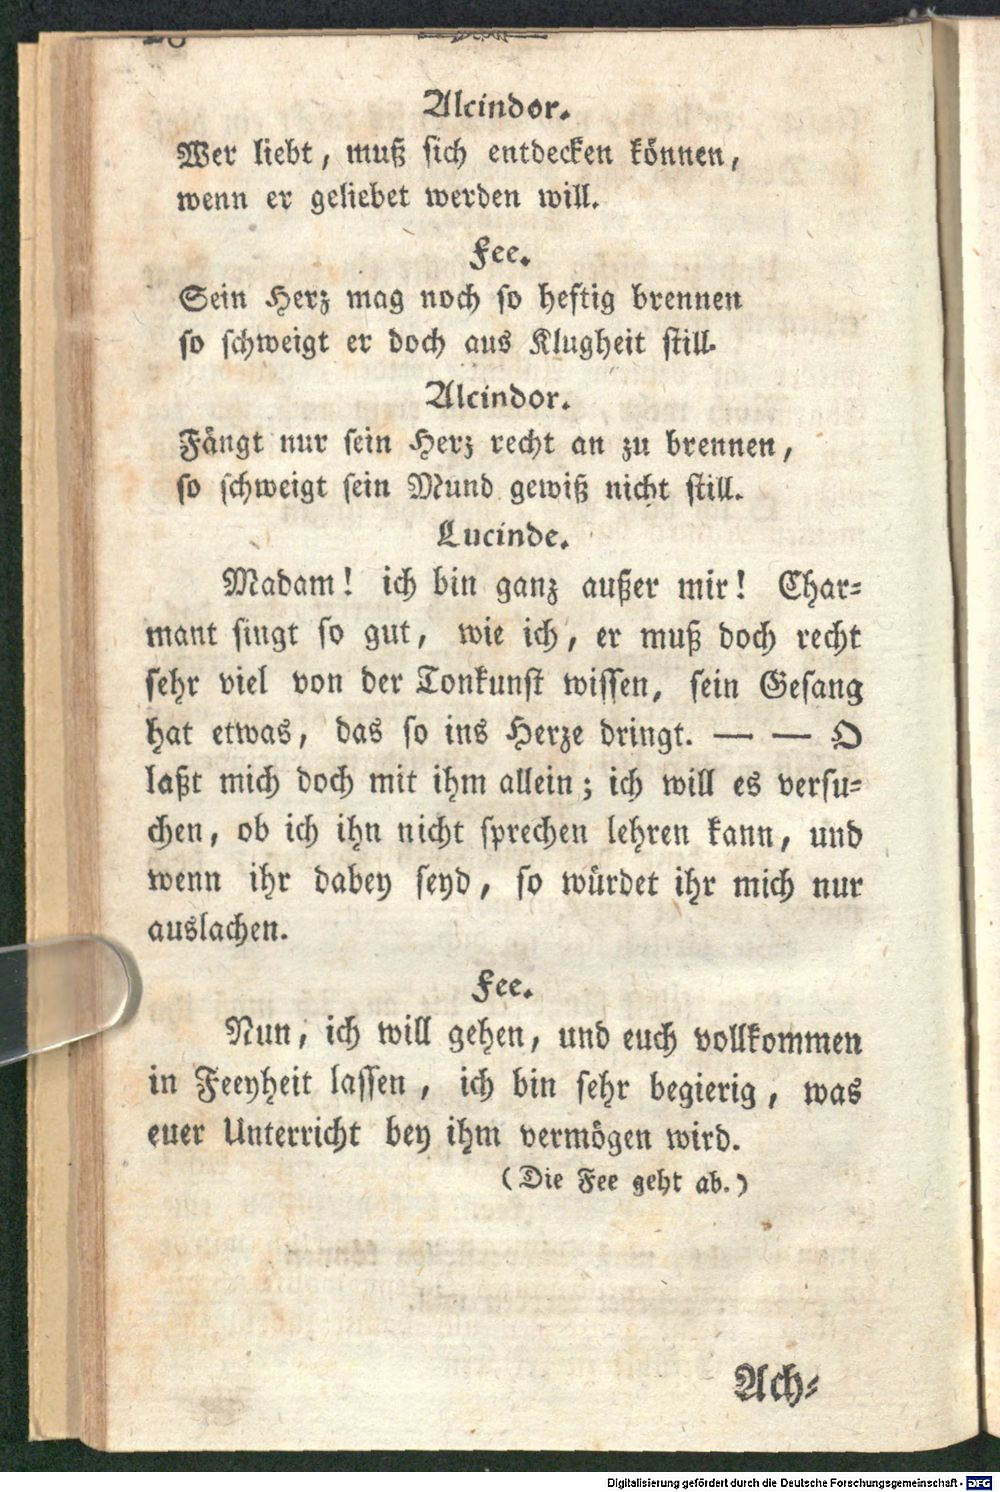 Alcindor.
Wer liebt, muß sich entdecken können,
wenn er geliebet werden will.
Fee.
Sein Herz mag noch so heftig brennen
so schweigt er doch aus Klugheit still.
Alcindor.
Fängt nur sein Herz recht an zu brennen,
so schweigt sein Mund gewiß nicht still.
Lucinde.
Madam! ich bin ganz außer mir! Char-
mant singt so gut, wie ich, er muß doch recht
sehr viel von der Tonkunst wissen, sein Gesang
hat etwas, das so ins Herze dringt. — — O
laßt mich doch mit ihm allein; ich will es versu-
chen, ob ich ihn nicht sprechen lehren kann, und
wenn ihr dabey seyd, so würdet ihr mich nur
auslachen.
Fee.
Nun, ich will gehen, und euch vollkommen
in Feeyheit lassen, ich bin sehr begierig, was
euer Unterricht bey ihm vermögen wird.
(Die Fee geht ab.)
Ach-
Digitalisierung gefördert durch die Deutsche Forschungsgemeinschaft - DFG